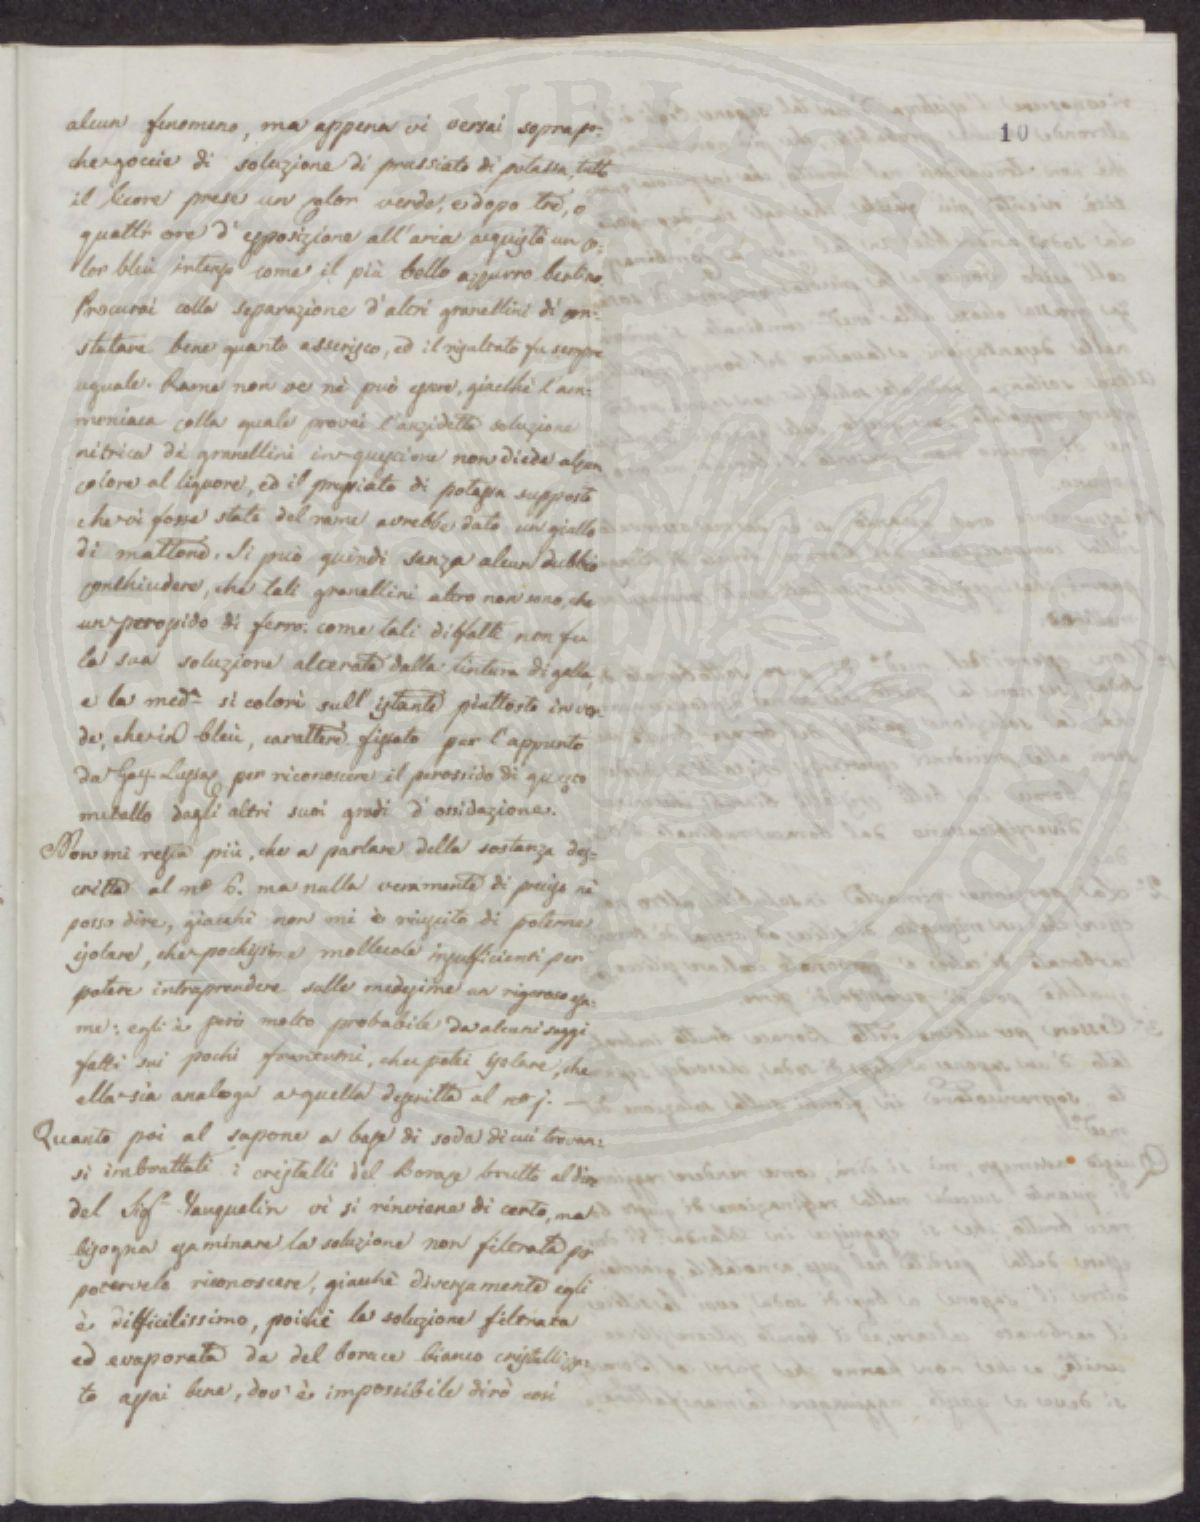 10
alcun fenomeno, ma appena vi versai sopra po-
che goccie di soluzione di prussiato di potassa, tutto
il licore prese un color verde, e dopo tre, o
quattr' ore d' esposizione all' aria acquistò un co-
lor bleù intenso come il più bello azzurro berlino.
Procurai colla separazione d' altri granellini di con-
statare bene quanto asserisco, ed il risultato fu sempre
uguale. Rame non ve nè può essere, giacchè l' am-
moniaca colla quale provai l' anzidetta soluzione
nitrica di granellini in quescione non diede alcun
colore al liquore, ed il prussiato di potassa supposto
che vi fosse stato del rame avrebbe dato un giallo
di mattone. Si può quindi senza alcun dubbio
conchiudere, che tali granellini altro non sono, che
un perossido di ferro: come tali diffatti non fu
la sua soluzione alterata dalla tintura di galla,
e la med.ª si colorì sull' istante piuttosto in ver-
de, che in bleù, carattere fissato per l' appunto
da Gay-Lussac per riconoscere il perossido di questo
metallo dagli altri suoi gradi d' ossidazione.
Non mi resta più, che a parlare della sostanza des-
critta al nº 6. ma nulla veramente di preciso nè
posso dire, giacchè non mi è riuscito di poterne
isolare, che pochissime mollecole insufficienti per
potere intraprendere sulle medesime un rigoroso esa-
me: egli è però molto probabile da alcuni saggi
fatti sui pochi frantumi, che potei isolare, che
ella sia analoga a quella descritta al nº j. —
Quanto poi al sapone a base di soda di cui trovan-
si imbrattati i cristalli del Borace brutto al dire
del Sig.r Vauquelin vi si rinviene di certo, ma
bisogna esaminare la soluzione non filtrata per
potervelo riconoscere, giacchè diversamente egli
è difficilissimo, poichè la soluzione filtrata
ed evaporata da del borace bianco cristallizza-
to assai bene, dov' è impossibile dirò così